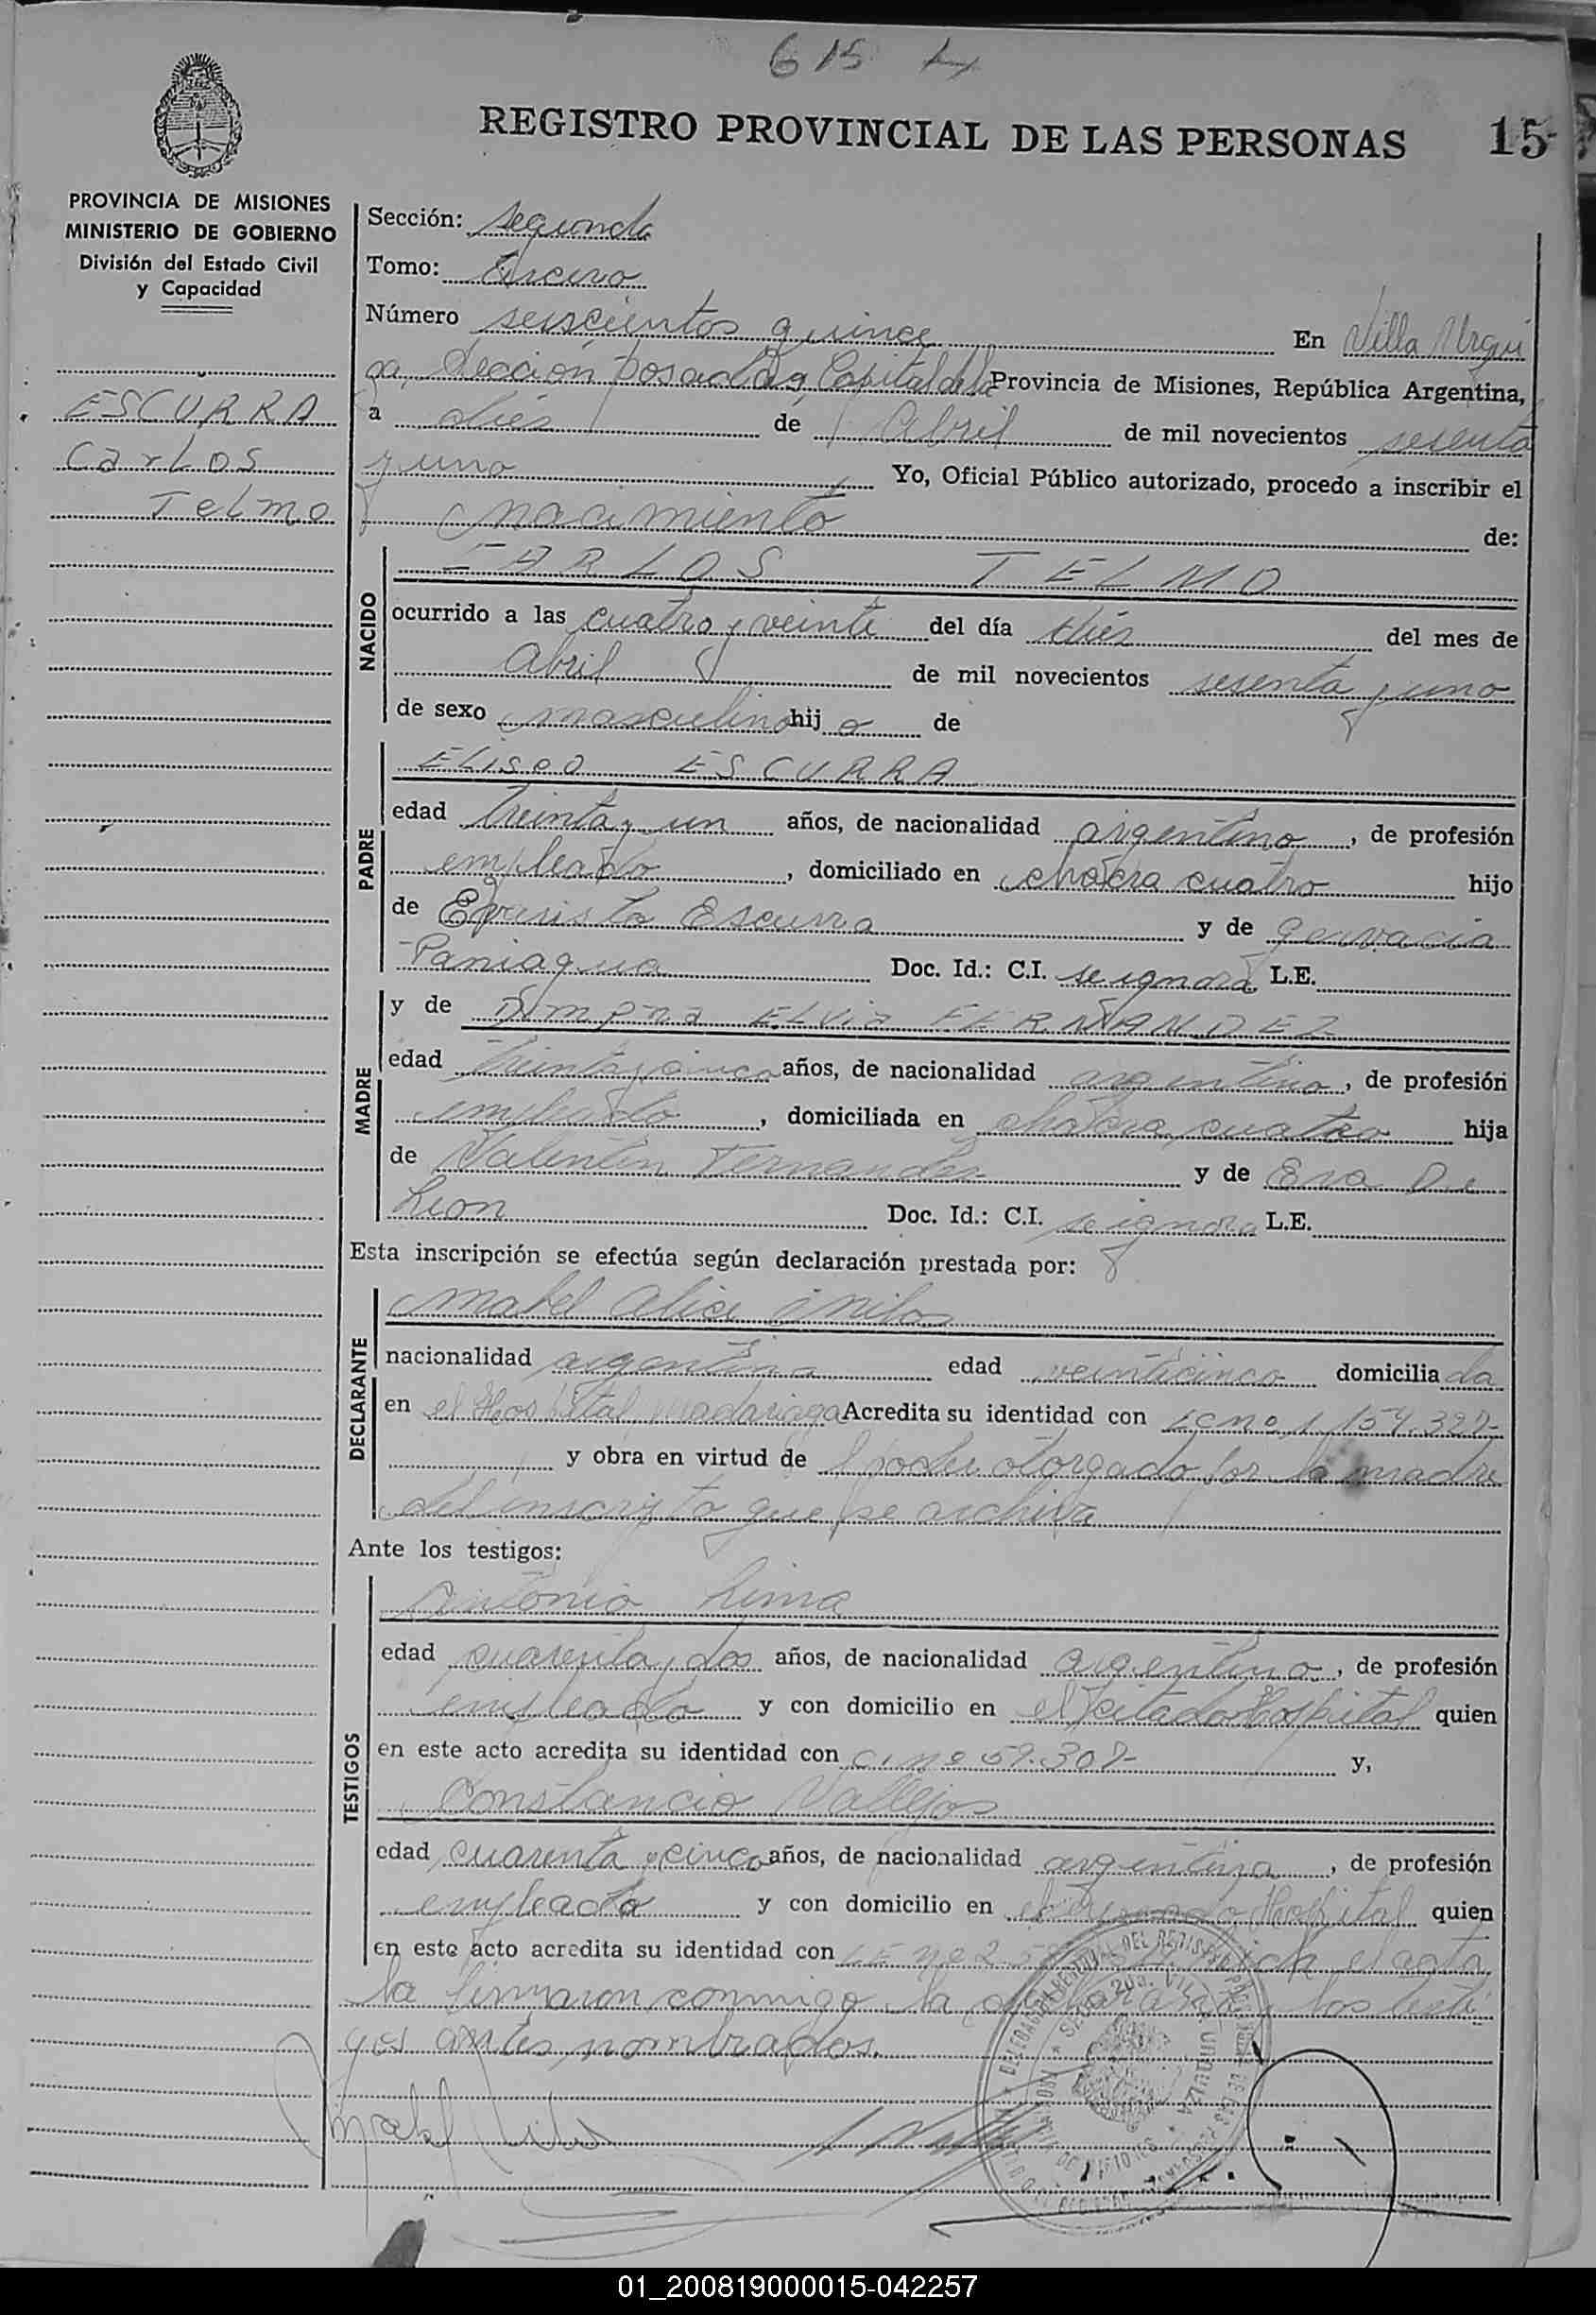 615
REGISTRO PROVINCIAL DE LAS PERSONAS 15
PROVINCIA DE MISIONES
MINISTERIO DE GOBIERNO
División del Estado Civil
y Capacidad
ESCURRA
Carlos
Telmo
Sección: segunda
Tomo: tercero
Número seiscientos quince En Villa Urqui
za, Sección Posadas, Capital de la Provincia de Misiones, República Argentina,
a diés de Abril de mil novecientos sesenta
y uno Yo, Oficial Público autorizado, procedo a inscribir el
nacimiento de:
NACIDO
CARLOS TELMO
ocurrido a las cuatro y veinte del día diés del mes de
Abril de mil novecientos sesenta y uno
de sexo masculino hijo de
PADRE
Eliseo ESCURRA
edad treinta y un años, de nacionalidad argentino, de profesión
empleado, domiciliado en chacra cuatro hijo
de Evaristo Escurra y de Gervacia
Paniagua Doc. Id.: C.I. se ignora L.E.
MADRE
y de Dimpna Elvia FERNANDEZ
edad treinta y cinco años, de nacionalidad argentina, de profesión
empleada, domiciliada en chacra cuatro hija
de Valentin Fernandes y de Eva De
Leon Doc. Id.: C.I. se ignora L.E.
Esta inscripción se efectúa según declaración prestada por:
DECLARANTE
Mabel Alice
nacionalidad argentina edad veinticinco domiciliada
en el Hospital Madariaga Acredita su identidad con LC no 1.154.327-
y obra en virtud de poder otorgado por la madre
del inscripto que se archiva
Ante los testigos:
TESTIGOS
Antonio Lima
edad cuarenta y dos años, de nacionalidad argentino, de profesión
empleado y con domicilio en el citado Hospital quien
en este acto acredita su identidad con C.I. no 59.307- y,
Constancio Vallejos
edad cuarenta y cinco años, de nacionalidad argentina, de profesión
empleado y con domicilio en Hospital quien
en este acto acredita su identidad con LE no el acta
la firmaron conmigo la declarante y los testi
gos antes nombrados.
Mabel
01_200819000015-042257